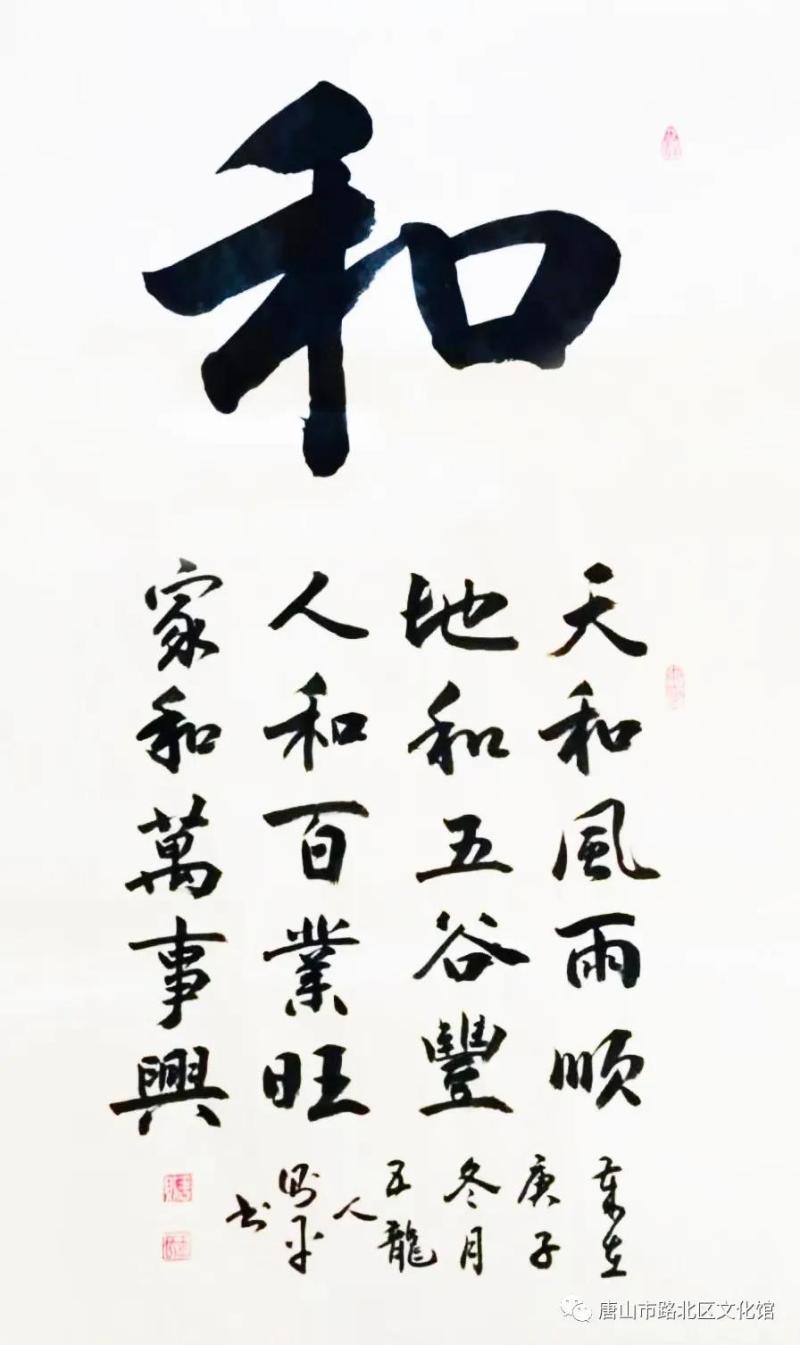 和
天和風雨順
地和五谷豐
人和百業旺
家和萬事興
歲在
庚子
冬月
五龍
人
书
唐山市路北区文化馆